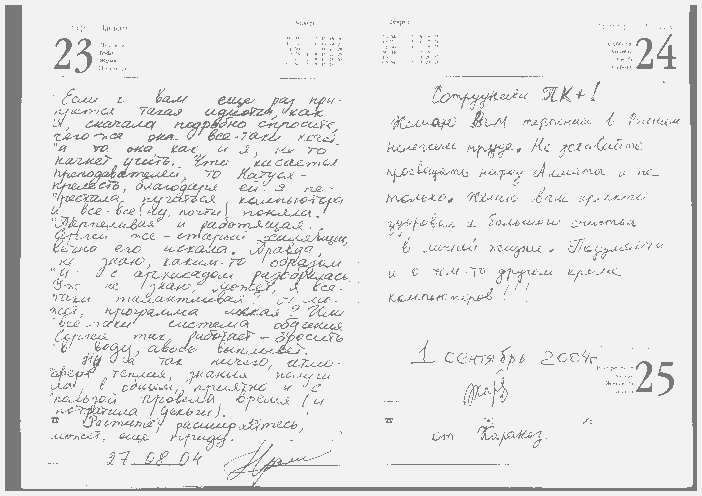 23
Если к вам еще раз при-
прется такая идиотка, как
я, сначала подробно спросите,
чего же она все-таки хочет,
а то она как и я, не то
начнет учить. Что касается
преподавателей, то Натуся -
прелесть, благодаря ей я пе-
рестала пугаться компьютера
и все-все (ну, почти) поняла.
Терпеливая и работящая.
Сергей же - старый
вечно его искала. Правда,
не знаю, каким-то образом
и с архикадом разобралась.
Уж не знаю, может, я все-
таки талантливая? А мо-
жет, программа легкая? Или
все-таки система обучения
Сергея так работает - бросить
в воду, авось выплывет.
Ну а так ничего, атмо-
сфера теплая, знания получи-
ла, в общем, приятно и с
пользой провела время (и
потратила деньги).
Растите, расширяйтесь,
может, еще приду.
27 08 04
24
Сотрудники ПК+!
Желаю Вам терпения в Вашем
нелегком труде. Не уставайте
просвещать народ Алматы и не
только. Желаю вам крепкого
здоровья и большого счастья
в личной жизни. Подумайте
и о чем-то другом кроме
компьютеров!!!
1 сентябрь 2004г
25
от Каракоз.